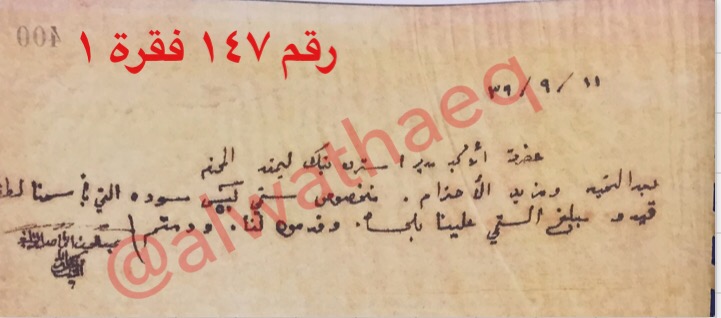 400
رقم ١٤٧ فقرة ١
١١ / ٩ / ٣٦
حضرة الأمجد مدير استرن بنك ليمتد المحترم
بعد التحية ومزيد الأحترام. بخصوص ستمي كيس سوده التي في سمنا
قيدو مبلغ الستمي علينا وقدموه لنا. ودمتم
@alwathaeq